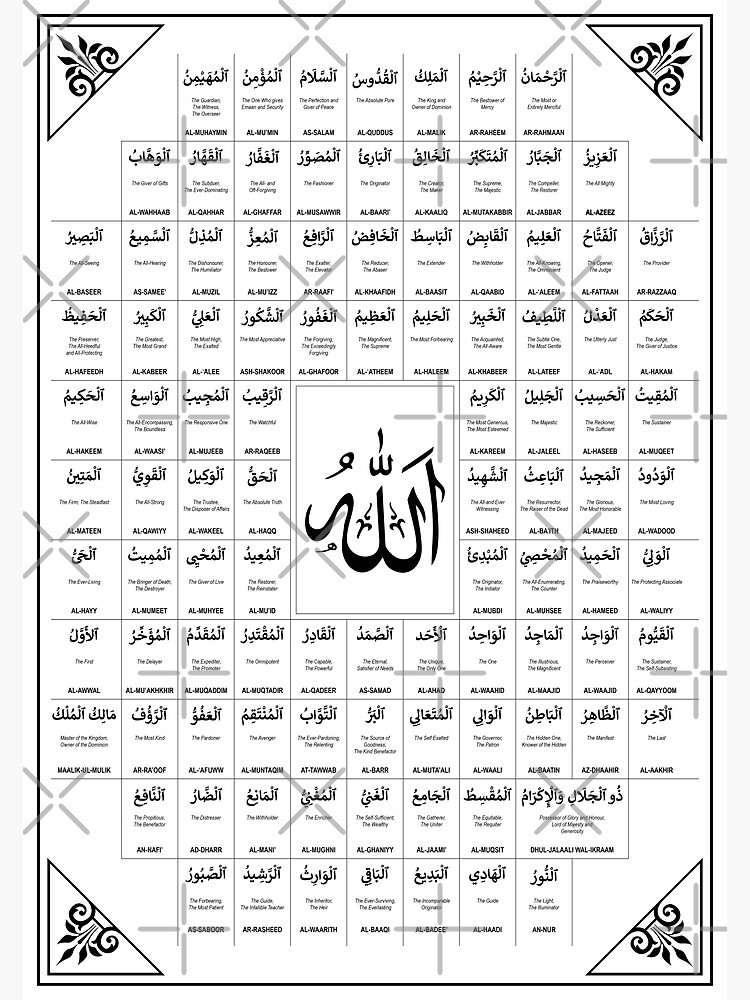 ٱلْرَّحْمَانُ
The Most or
Entirely Merciful
AR-RAHMAAN
ٱلْرَّحِيْمُ
The Bestower of
Mercy
AR-RAHEEM
ٱلْمَلِكُ
The King and
Owner of Dominion
AL-MALIK
ٱلْقُدُّوسُ
The Absolute Pure
AL-QUDDUS
ٱلْسَّلَامُ
The Perfection and
Giver of Peace
AS-SALAM
ٱلْمُؤْمِنُ
The One Who gives
Emaan and Security
AL-MU'MIN
ٱلْمُهَيْمِنُ
The Guardian,
The Witness,
The Overseer
AL-MUHAYMIN
ٱلْعَزِيزُ
The All Mighty
AL-AZEEZ
ٱلْجَبَّارُ
The Compeller,
The Restorer
AL-JABBAR
ٱلْمُتَكَبِّرُ
The Supreme,
The Majestic
AL-MUTAKABBIR
ٱلْخَالِقُ
The Creator,
The Maker
AL-KAALIQ
ٱلْبَارِئُ
The Originator
AL-BAARI'
ٱلْمُصَوِّرُ
The Fashioner
AL-MUSAWWIR
ٱلْغَفَّارُ
The All- and
Oft-Forgiving
AL-GHAFFAR
ٱلْقَهَّارُ
The Subduer,
The Ever-Dominating
AL-QAHHAR
ٱلْوَهَّابُ
The Giver of Gifts
AL-WAHHAAB
ٱلْرَّزَّاقُ
The Provider
AR-RAZZAQ
ٱلْفَتَّاحُ
The Opener,
The Judge
AL-FATTAAH
ٱلْعَلِيمُ
The All-Knowing,
The Omniscient
AL-'ALEEM
ٱلْقَابِضُ
The Withholder
AL-QAABID
ٱلْبَاسِطُ
The Extender
AL-BAASIT
ٱلْخَافِضُ
The Reducer,
The Abaser
AL-KHAAFIDH
ٱلْرَّافِعُ
The Exalter,
The Elevator
AR-RAAFI'
ٱلْمُعِزُّ
The Honourer,
The Bestower
AL-MU'IZZ
ٱلْمُذِلُّ
The Dishonourer,
The Humiliator
AL-MUZIL
ٱلْسَّمِيعُ
The All-Hearing
AS-SAMEE'
ٱلْبَصِيْرُ
The All-Seeing
AL-BASEER
ٱلْحَكَمُ
The Judge,
The Giver of Justice
AL-HAKAM
ٱلْعَدْلُ
The Utterly Just
AL-'ADL
ٱللَّطِيفُ
The Subtle One,
The Most Gentle
AL-LATEEF
ٱلْخَبِيْرُ
The Acquainted,
The All-Aware
AL-KHABEER
ٱلْحَلِيمُ
The Most Forbearing
AL-HALEEM
ٱلْعَظِيْمُ
The Magnificent,
The Supreme
AL-'ATHEEM
ٱلْغَفُوْرُ
The Forgiving,
The Exceedingly
Forgiving
AL-GHAFOOR
ٱلْشَّكُورُ
The Most Appreciative
ASH-SHAKOOR
ٱلْعَلِيُّ
The Most High,
The Exalted
AL-'ALEE
ٱلْكَبِيْرُ
The Greatest,
The Most Grand
AL-KABEER
ٱلْحَفِيْظُ
The Preserver,
The All-Heedful
and All-Protecting
AL-HAFEEDH
ٱلْمُقِيْتُ
The Sustainer
AL-MUQEET
ٱلْحَسِيْبُ
The Reckoner,
The Sufficient
AL-HASEEB
ٱلْجَلِيْلُ
The Majestic
AL-JALEEL
ٱلْكَرِيْمُ
The Most Generous,
The Most Esteemed
AL-KAREEM
ٱلْرَّقِيْبُ
The Watchful
AR-RAQEEB
ٱلْمُجِيْبُ
The Responsive One
AL-MUJEEB
ٱلْوَاسِعُ
The All-Encompassing,
The Boundless
AL-WAASI'
ٱلْحَكِيْمُ
The All-Wise
AL-HAKEEM
ٱلْوَدُوْدُ
The Most Loving
AL-WADOOD
ٱلْمَجِيْدُ
The Glorious,
The Most Honorable
AL-MAJEED
ٱلْبَاعِثُ
The Resurrector,
The Raiser of the Dead
AL-BA'ITH
ٱلْشَّهِيْدُ
The All-and Ever
Witnessing
ASH-SHAHEED
ٱلْحَقُّ
The Absolute Truth
AL-HAQQ
ٱلْوَكِيْلُ
The Trustee,
The Disposer of Affairs
AL-WAKEEL
ٱلْقَوِيُّ
The All-Strong
AL-QAWIYY
ٱلْمَتِيْنُ
The Firm, The Steadfast
AL-MATEEN
ٱلْوَلِيُّ
The Protecting Associate
AL-WALIYY
ٱلْحَمِيْدُ
The Praiseworthy
AL-HAMEED
ٱلْمُحْصِيُ
The All-Enumerating,
The Counter
AL-MUHSEE
ٱلْمُبْدِئُ
The Originator,
The Initiator
AL-MUBDI
الله
ٱلْمُعِيْدُ
The Restorer,
The Reinstater
AL-MU'ID
ٱلْمُحْيِي
The Giver of Live
AL-MUHYEE
ٱلْمُمِيْتُ
The Bringer of Death,
The Destroyer
AL-MUMEET
ٱلْحَيُّ
The Ever-Living
AL-HAYY
ٱلْقَيُّومُ
The Sustainer,
The Self-Subsisting
AL-QAYYOOM
ٱلْوَاجِدُ
The Perceiver
AL-WAAJID
ٱلْمَاجِدُ
The Illustrious,
The Magnificent
AL-MAAJID
ٱلْوَاحِدُ
The One
AL-WAAHID
ٱلْأَحَد
The Unique,
The Only One
AL-AHAD
ٱلْصَّمَدُ
The Eternal,
Satisfier of Needs
AS-SAMAD
ٱلْقَادِرُ
The Capable,
The Powerful
AL-QADEER
ٱلْمُقْتَدِرُ
The Omnipotent
AL-MUQTADIR
ٱلْمُقَدِّمُ
The Expediter,
The Promoter
AL-MUQADDIM
ٱلْمُؤَخِّرُ
The Delayer
AL-MU'AKHKHIR
ٱلْأَوَّلُ
The First
AL-AWWAL
ٱلْآخِرُ
The Last
AL-AAKHIR
ٱلْظَّاهِرُ
The Manifest
AZ-DHAAHIR
ٱلْبَاطِنُ
The Hidden One,
Knower of the Hidden
AL-BAATIN
ٱلْوَالِي
The Governor,
The Patron
AL-WAALI
ٱلْمُتَعَالِي
The Self Exalted
AL-MUTA'ALI
ٱلْبَرُّ
The Source of
Goodness,
The Kind Benefactor
AL-BARR
ٱلْتَّوَّابُ
The Ever-Pardoning,
The Relenting
AT-TAWWAB
ٱلْمُنْتَقِمُ
The Avenger
AL-MUNTAQIM
ٱلْعَفُوُّ
The Pardoner
AL-'AFUWW
ٱلْرَّؤُفُ
The Most Kind
AR-RA'OOF
مَالِكُ ٱلْمُلْكُ
Master of the Kingdom,
Owner of the Dominion
MAALIK-UL-MULIK
ذُو ٱلْجَلَالِ وَٱلْإِكْرَامُ
Possessor of Glory and Honour,
Lord of Majesty and
Generosity
DHUL-JALAALI WAL-IKRAAM
ٱلْمُقْسِطُ
The Equitable,
The Requiter
AL-MUQSIT
ٱلْجَامِعُ
The Gatherer,
The Uniter
AL-JAAMI'
ٱلْغَنِيُّ
The Self-Sufficient,
The Wealthy
AL-GHANIYY
ٱلْمُغْنِيُّ
The Enricher
AL-MUGHNI
ٱلْمَانِعُ
The Withholder
AL-MANI'
ٱلْضَّارُ
The Distresser
AD-DHARR
ٱلْنَّافِعُ
The Propitious,
The Benefactor
AN-NAFI'
ٱلْنُّورُ
The Light,
The Illuminator
AN-NUR
ٱلْهَادِي
The Guide
AL-HAADI
ٱلْبَدِيعُ
The Incomparable
Originator
AL-BADEE'
ٱلْبَاقِي
The Ever-Surviving,
The Everlasting
AL-BAAQI
ٱلْوَارِثُ
The Inheritor,
The Heir
AL-WAARITH
ٱلْرَّشِيدُ
The Guide,
The Infallible Teacher
AR-RASHEED
ٱلْصَّبُورُ
The Forbearing,
The Most Patient
AS-SABOOR